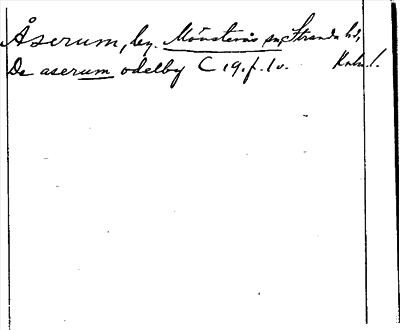 Åserum, by. Mönsterås sn, Stranda hd,
De aserum odelby C 19. f. 1 v. Kalm. l.